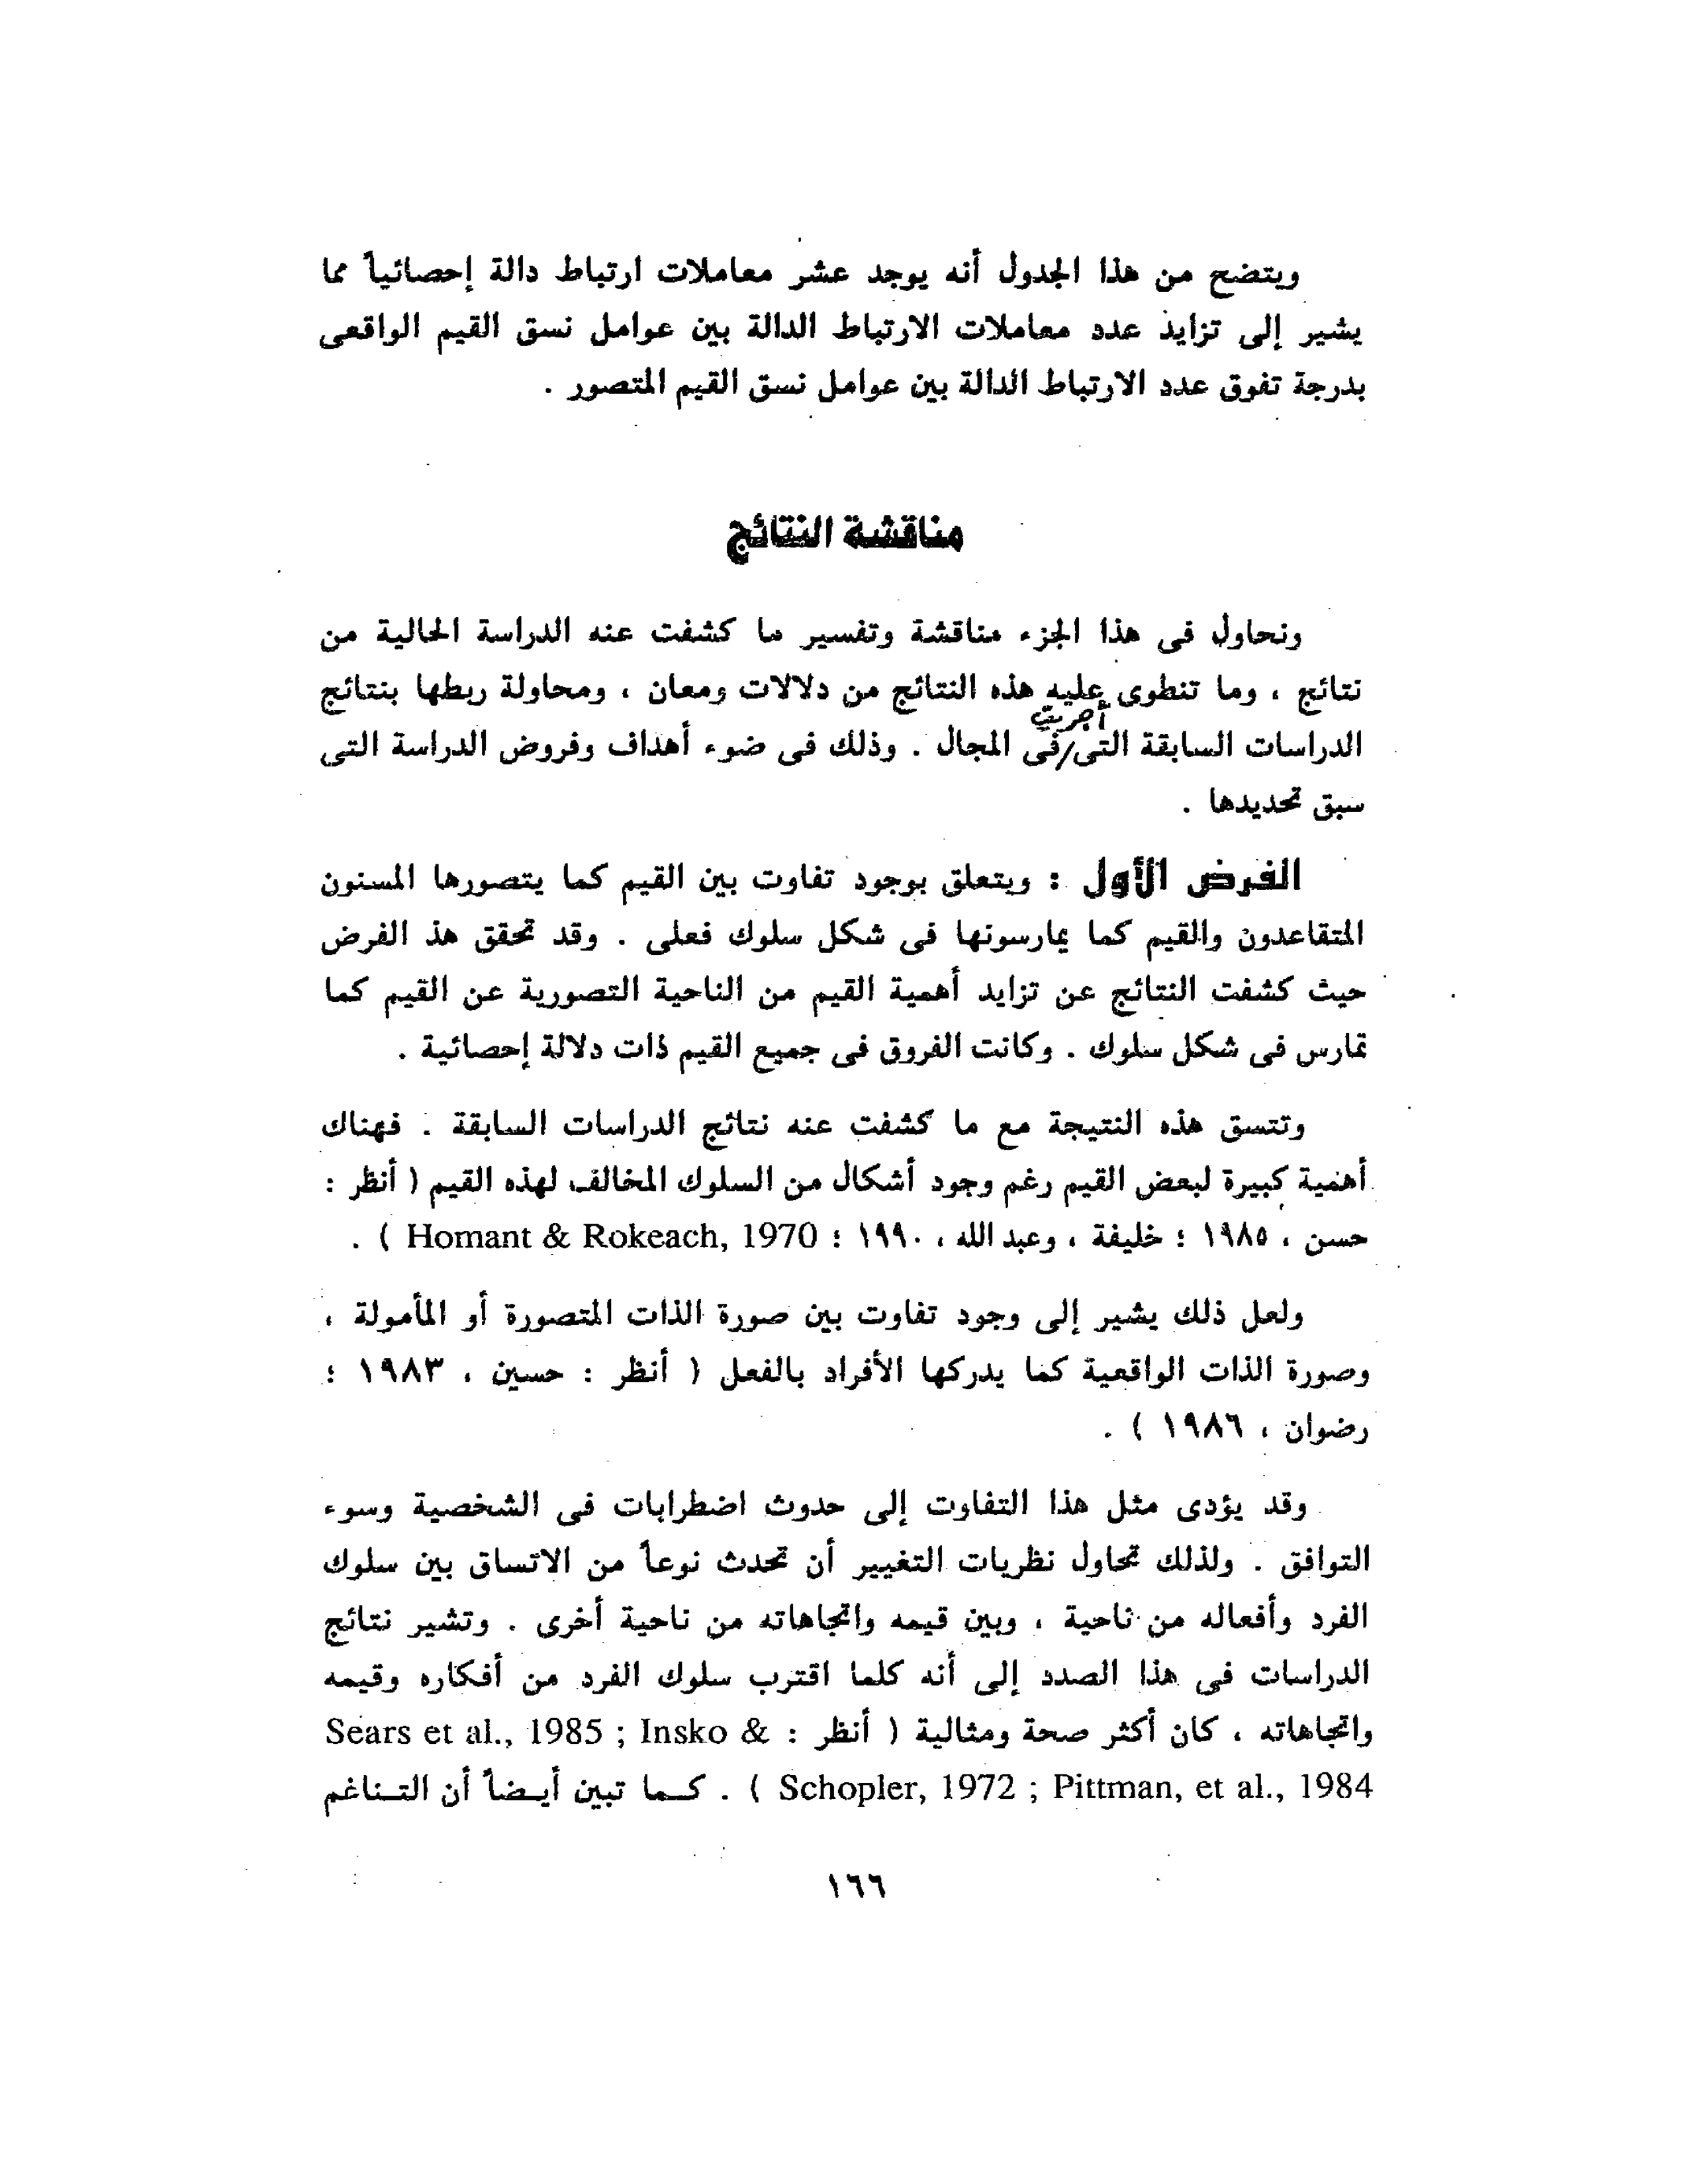 ويتضح من هذا الجدول أنه يوجد عشر معاملات ارتباط دالة إحصائياً مما
يشير إلى تزايد عدد معاملات الارتباط الدالة بين عوامل نسق القيم الواقعى
بدرجة تفوق عدد الارتباط الدالة بين عوامل نسق القيم المتصور .
مناقشة النتائج
ونحاول فى هذا الجزء مناقشة وتفسير ما كشفت عنه الدراسة الحالية من
نتائج ، وما تنطوى عليه هذه النتائج من دلالات ومعان ، ومحاولة ربطها بنتائج
أجريت
الدراسات السابقة التى/فى المجال . وذلك فى ضوء أهداف وفروض الدراسة التى
سبق تحديدها .
الفرض الأول : ويتعلق بوجود تفاوت بين القيم كما يتصورها المسنون
المتقاعدون والقيم كما يمارسونها فى شكل سلوك فعلى . وقد تحقق هذ الفرض
حيث كشفت النتائج عن تزايد أهمية القيم من الناحية التصورية عن القيم كما
تمارس فى شكل سلوك . وكانت الفروق فى جميع القيم ذات دلالة إحصائية .
وتتسق هذه النتيجة مع ما كشفت عنه نتائج الدراسات السابقة . فهناك
أهمية كبيرة لبعض القيم رغم وجود أشكال من السلوك المخالف لهذه القيم ( أنظر :
حسن ، ١٩٨٥ ؛ خليفة ، وعبد الله ، ١٩٩٠ ؛ Homant & Rokeach, 1970 ) .
ولعل ذلك يشير إلى وجود تفاوت بين صورة الذات المتصورة أو المأمولة ،
وصورة الذات الواقعية كما يدركها الأفراد بالفعل ( أنظر : حسين ، ١٩٨٣ ؛
رضوان ، ١٩٨٦ ) .
وقد يؤدى مثل هذا التفاوت إلى حدوث اضطرابات فى الشخصية وسوء
التوافق . ولذلك تحاول نظريات التغيير أن تحدث نوعاً من الاتساق بين سلوك
الفرد وأفعاله من ناحية ، وبين قيمه واتجاهاته من ناحية أخرى . وتشير نتائج
الدراسات فى هذا الصدد إلى أنه كلما اقترب سلوك الفرد من أفكاره وقيمه
واتجاهاته ، كان أكثر صحة ومثالية ( أنظر : Sears et al., 1985 ; Insko &
Schopler, 1972 ; Pittman, et al., 1984 ) . كـما تبين أيـضاً أن التـناغم
١٦٦